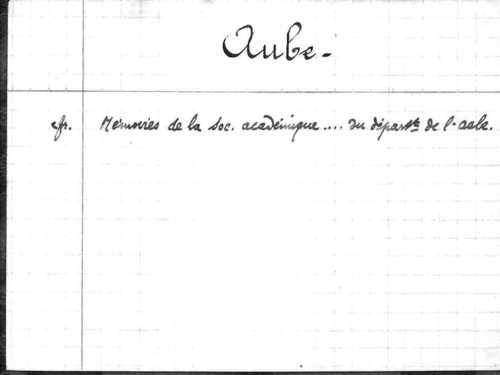 Aube -
cfr. Mémoires de la Soc. académique .... du départt de l'Aube.